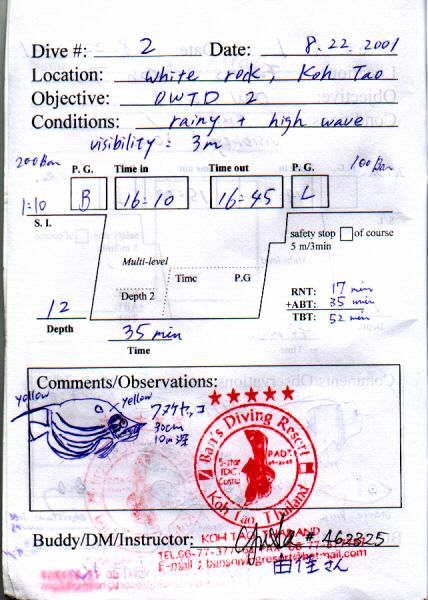 Dive #: 2 Date: 8.22.2001
Location: white rock, Koh Tao
Objective: OWTD 2
Conditions: rainy + high wave
visibility: 3m
200Bar P. G. Time in Time out P. G. 100Bar
1:10 B 16:10 16:45 L
S. I.
safety stop of course
5 m/3min
Multi-level
Time P.G
Depth 2
RNT: 17 min
+ABT: 35 min
TBT: 52 min
12
Depth
35 min
Time
Comments/Observations:
yellow yellow
30cm
10m深
Ban's Diving Resort
5-Star
IDC
Centre
PADI
Koh Tao, Thailand
Buddy/DM/Instructor: # 462325
KOH TAO THAILAND
TEL.66-77-377
E-mail : bansdivingresort@hotmail.com
由佳さん